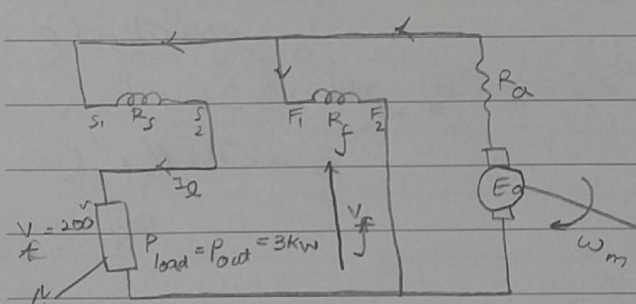 Ra
S1 Rs S2
F1 Rf F2
Il
Ea
Vt = 200V
Vf
Pload = Pout = 3kW
ωm